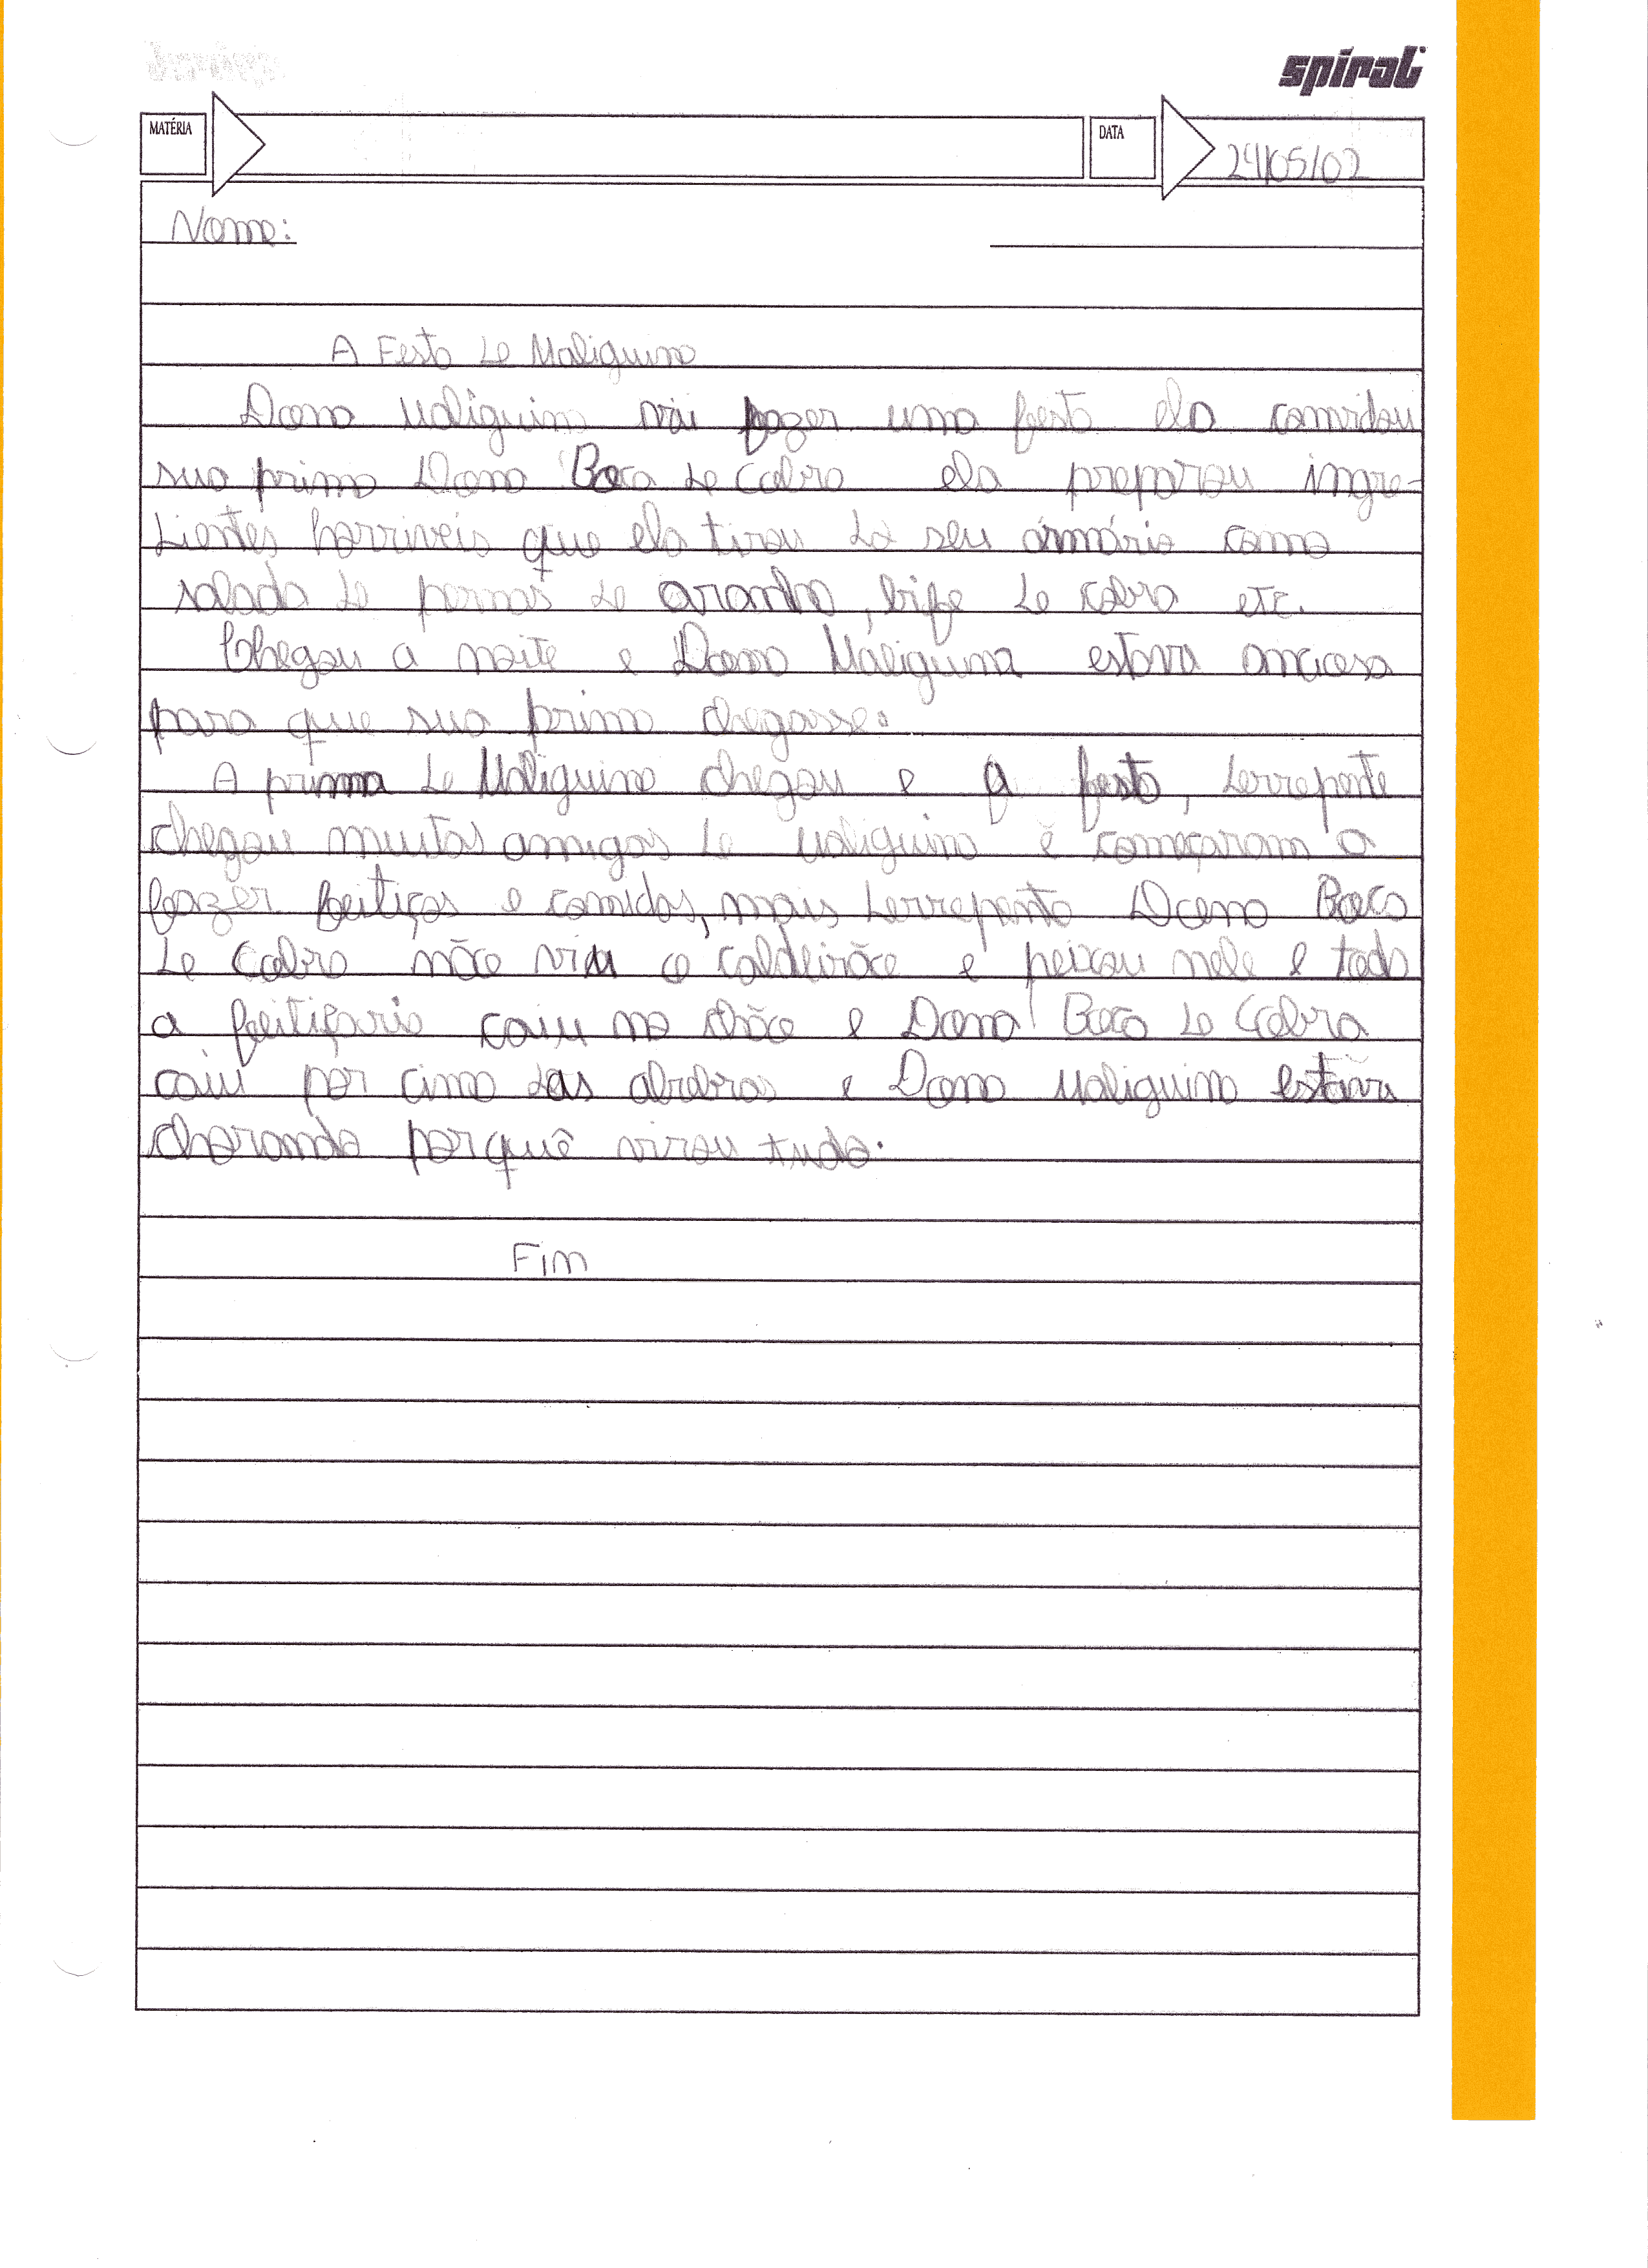 spiral
MATÉRIA
DATA
24/05/02
Nome:
A Festa de Maliguina
Dona Maliguina vai fazer uma festa ela convidou
sua prima Dona Boca de Cobra ela preparou ingre-
dientes horriveis que ela tirou do seu ármário como
salada de pernas de aranha, bife de cobra etc.
Chegou a noite e Dona Maliguina estava anciosa
para que sua prima chegasse.
A prima de Maliguina chegou e a festa, derrepente
chegou muitas amigas de Maliguina e começaram a
fazer feitiços e comidas, mais derrepente Dona Boca
de Cobra não viu o caldeirão e peixou nele e toda
a feitiçaria caiu no chão e Dona Boca de Cobra
caiu por cima das abobras e Dona Maliguina estava
chorando porquê virou tudo.
Fim